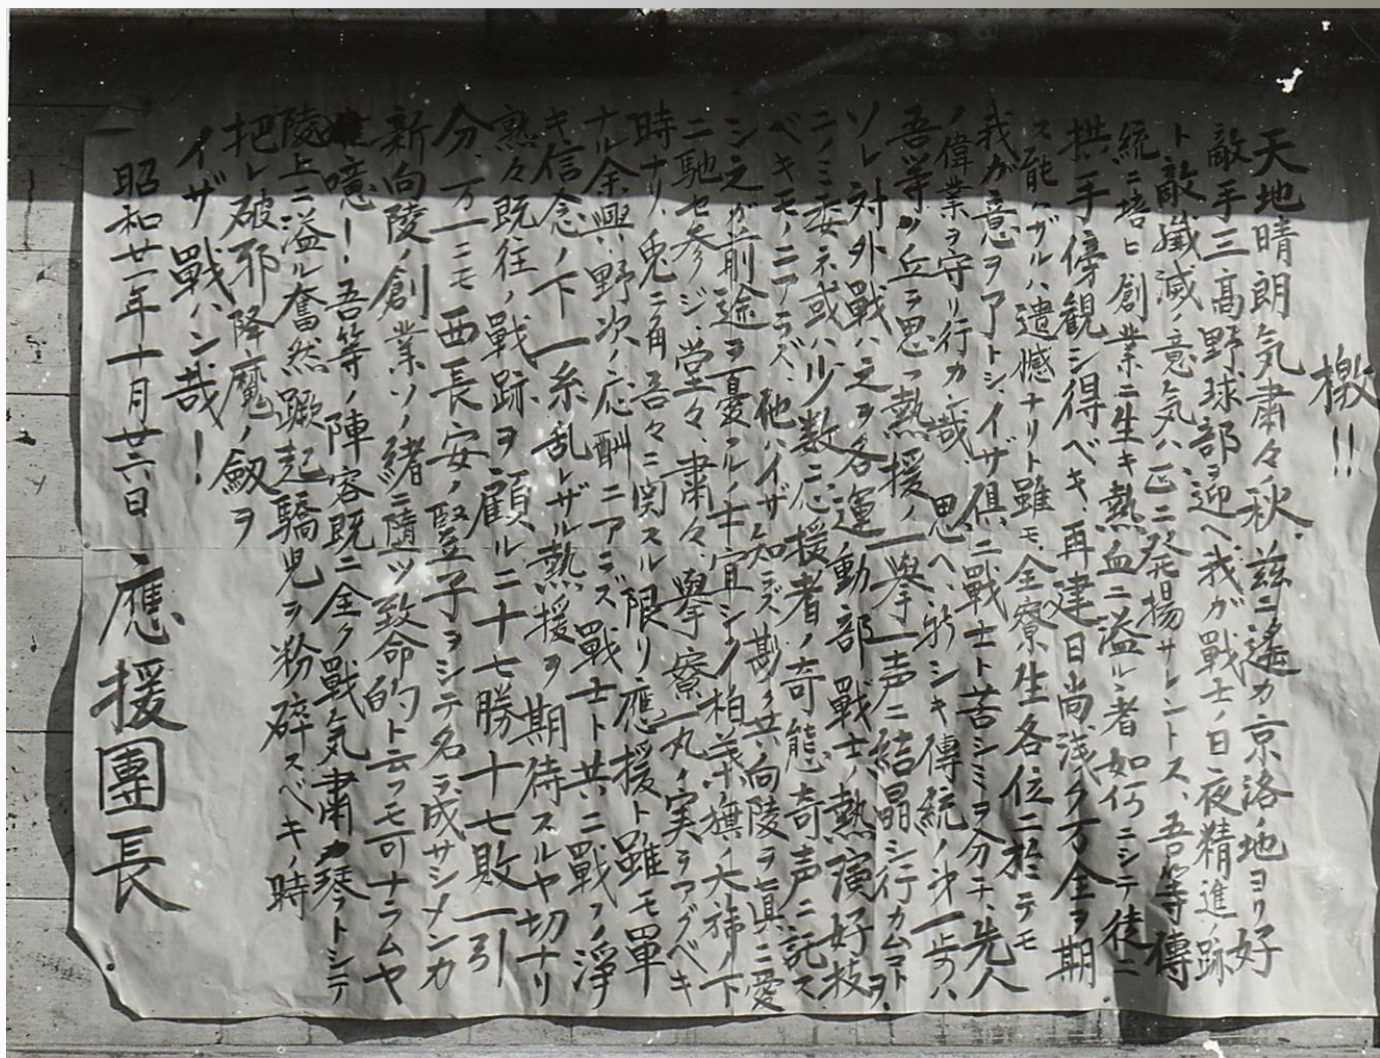 檄!!
天地晴朗気粛々秋、茲ニ遙カ京洛ノ地ヨリ好
敵手三高野球部ヲ迎ヘ、我ガ戦士ノ日夜精進ノ跡
ト敵殲滅ノ意気ハ、正ニ発揚サレントス、吾等傳
統ニ培ヒ創業ニ生キ熱血ニ溢ル者如何ニシテ徒ニ
拱手傍観シ得ベキ、再建日尚浅ク万全ヲ期
ス能ハザルハ遺憾ナリト雖モ、全寮生各位ニ於テモ
我ガ意ヲアトシ、イザ倶ニ戦士ト苦シミヲ分チ、先人
ノ偉業ヲ守リ行カン哉、思ヘ、新シキ傳統ノ第一歩ハ
吾等ガ丘ヲ思フ熱援ノ一擧一声ニ結晶シ行カムコトヲ、
ソレ対外戦ハ之ヲ各運動部戦士ノ熱演好技
ニノミ委ネ或ハ少数応援者ノ奇態奇声ニ託ス
ベキモノニアラズ、他ハイザ知ラズ、尠クモ向陵ヲ真ニ愛
シ之ガ前途ヲ憂フルノ士宜シク柏葉旗ノ大旆ノ下
ニ馳セ参ジ、堂々、粛々、擧寮一丸ノ実ヲアグベキ
時ナリ、兎ニ角吾々ニ関スル限リ應援ト雖モ單
ナル余興、野次ノ応酬ニアラズ戦士ト共ニ戰フノ淨
キ信念ノ下一糸乱レザル熱援ヲ期待スルヤ切ナリ
熟々既往ノ戰跡ヲ顧ルニ十七勝十七敗一引
分、万一ニモ西長安ノ豎子ヲシテ名ヲ成サシメンカ
新向陵ノ創業ソノ緒ニ隨ツ致命的ト云フモ可ナラムヤ
噫! 吾等ノ陣容既ニ全ク戰気粛カ琴トシテ
陵上ニ溢ル奮然蹶起驕児ヲ粉碎スベキノ時
把レ破邪降魔ノ劔ヲ
イザ戰ハン哉!
昭和廿一年十月廿六日
應援團長